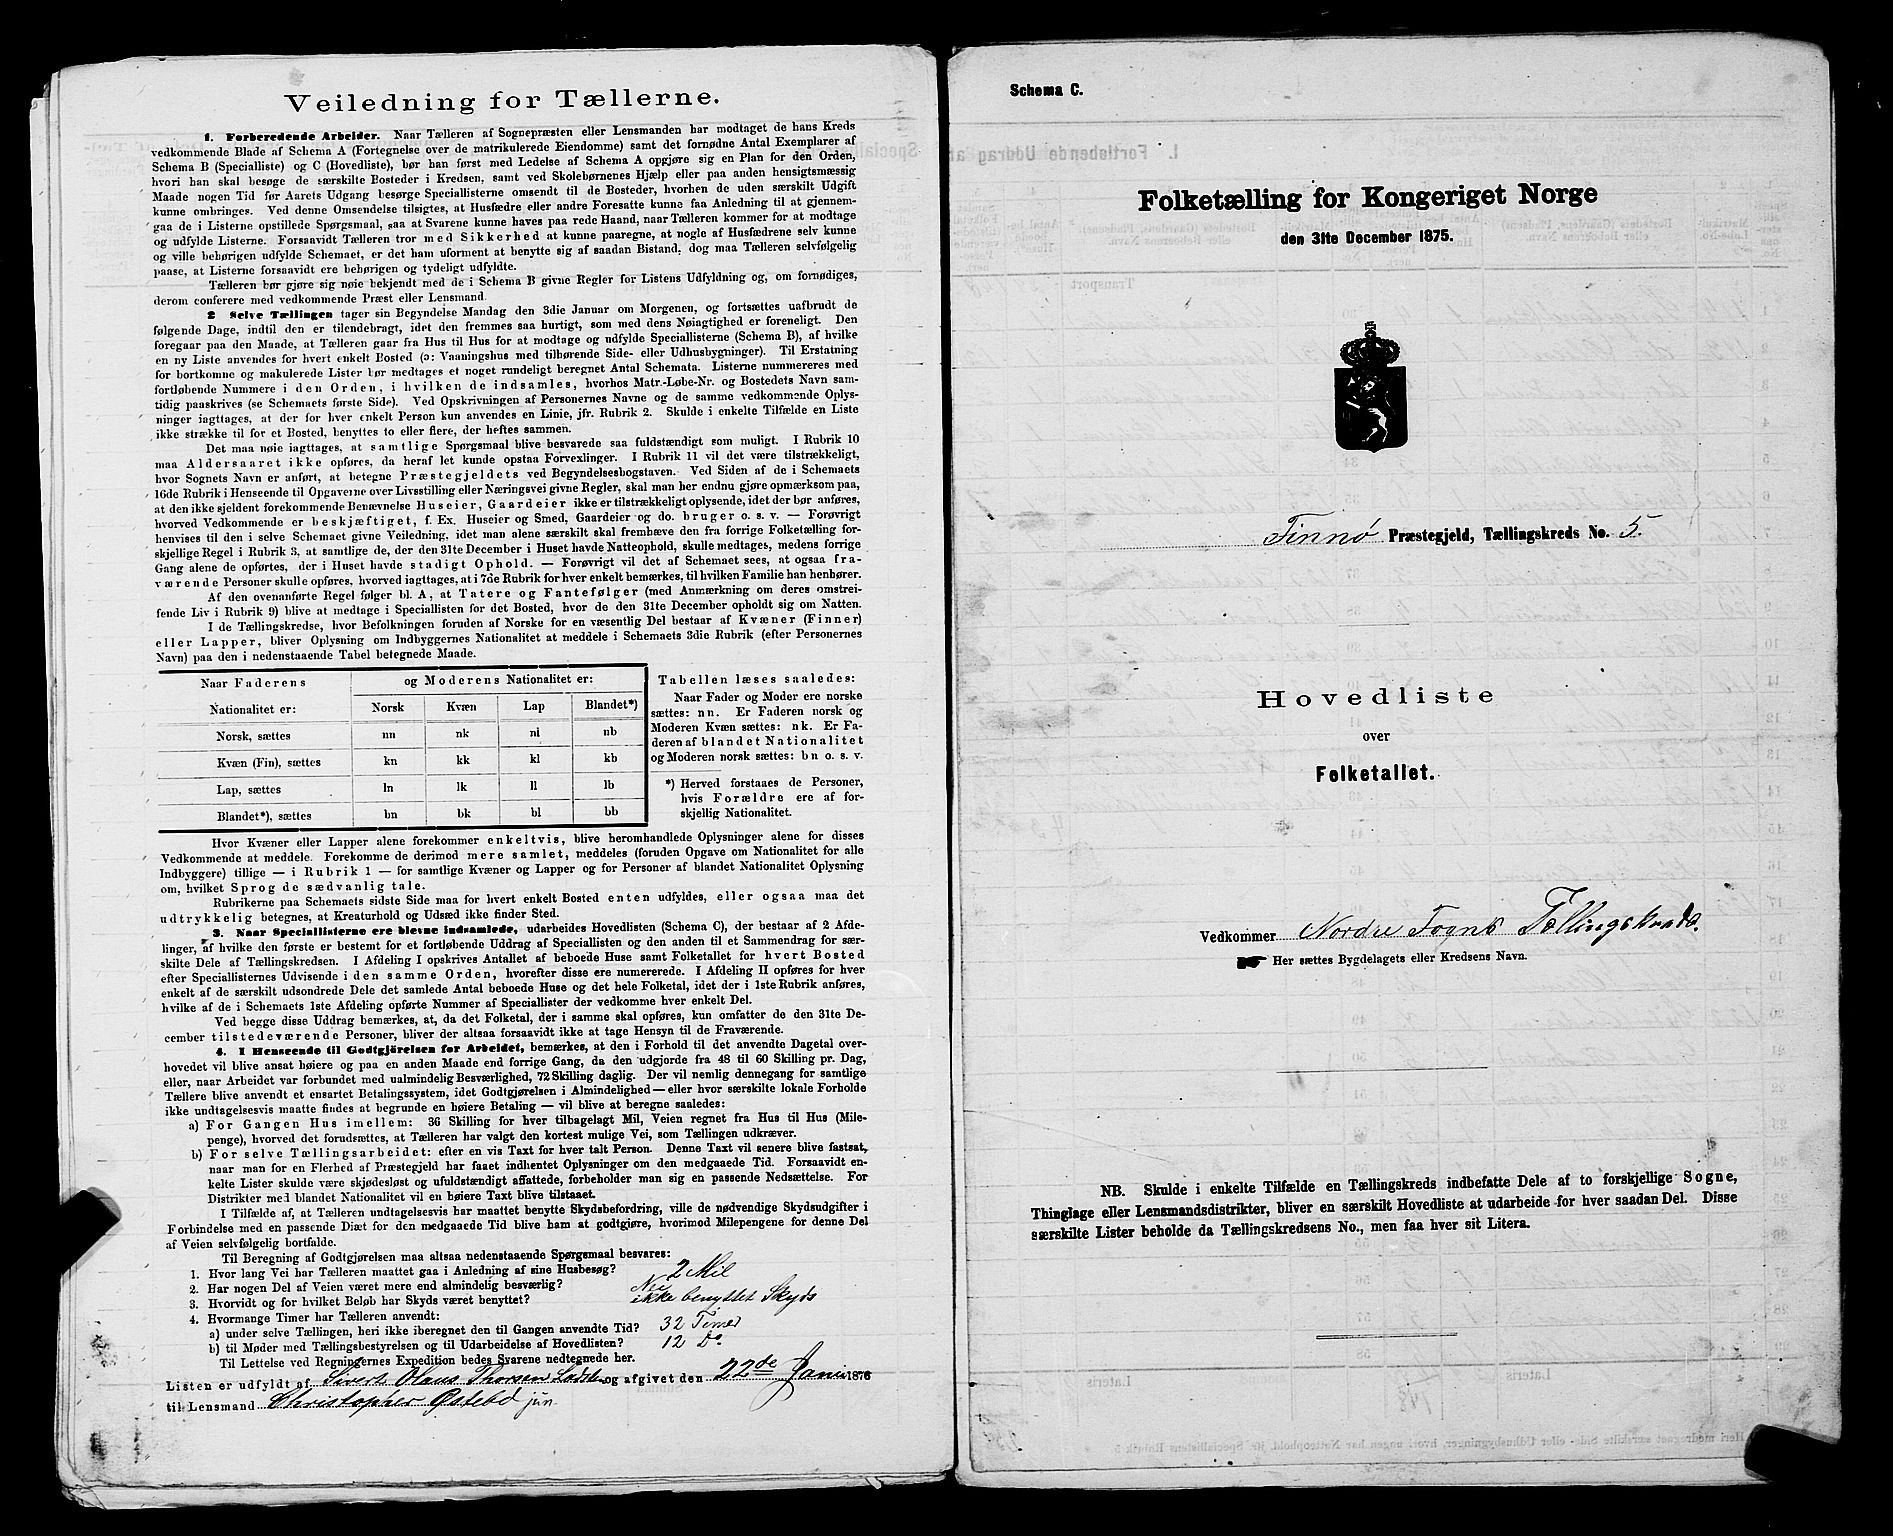 Veiledning for Tællerne.
1. Forberedende Arbeider. Naar Tælleren af Sognepræsten eller Lensmanden har modtaget de hans Kreds
vedkommende Blade af Schema A (Fortegnelse over de matrikulerede Eiendomme) samt det fornødne Antal Exemplarer af
Schema B (Specialliste) og C (Hovedliste), bør han først med Ledelse af Schema A opgjøre sig en Plan for den Orden,
hvori han skal besøge de særskilte Bosteder i Kredsen, samt ved Skolebørnenes Hjælp eller paa anden hensigtsmæssig
Maade nogen Tid før Aarets Udgang besørge Speciallisterne omsendt til de Bosteder, hvorhen de uden særskilt Udgift
kunne ombringes. Ved denne Omsendelse tilsigtes, at Husfædre eller andre Foresatte kunne faa Anledning til at gjennem-
gaa de i Listerne opstillede Spørgsmaal, saa at Svarene kunne haves paa rede Haand, naar Tælleren kommer for at modtage
og udfylde Listerne. Forsaavidt Tælleren tror med Sikkerhed at kunne paaregne, at nogle af Husfædrene selv kunne
og ville behørigen udfylde Schemaet, er det ham uforment at benytte sig af saadan Bistand, dog maa Tælleren selvfølgelig
paase, at Listerne forsaavidt ere behørigen og tydeligt udfyldte.
Tælleren bør gjøre sig nøie bekjendt med de i Schema B givne Regler for Listens Udfyldning og, om fornødiges,
derom conferere med vedkommende Præst eller Lensmand.
2 Selve Tællingen tager sin Begyndelse Mandag den 3die Januar om Morgenen, og fortsættes uafbrudt de
følgende Dage, indtil den er tilendebragt, idet den fremmes saa hurtigt, som med dens Nøiagtighed er foreneligt. Den
foregaar paa den Maade, at Tælleren gaar fra Hus til Hus for at modtage og udfylde Speciallisterne (Schema B), af hvilke
en ny Liste anvendes for hvert enkelt Bosted (ɔ: Vaaningshus med tilhørende Side- eller Udhusbygninger). Til Erstatning
for bortkomne og makulerede Lister bør medtages et noget rundeligt beregnet Antal Schemata. Listerne nummereres med
fortløbende Nummere i den Orden, i hvilken de indsamles, hvorhos Matr.-Løbe-Nr. og Bostedets Navn sam-
tidig paaskrives (se Schemaets første Side). Ved Opskrivningen af Personernes Navne og de samme vedkommende Oplys-
ninger iagttages, at der for hver enkelt Person kun anvendes en Linie, jfr. Rubrik 2. Skulde i enkelte Tilfælde en Liste
ikke strække til for et Bosted, benyttes to eller flere, der heftes sammen.
Det maa nøie iagttages, at samtlige Spørgsmaal blive besvarede saa fuldstændigt som muligt. I Rubrik 10
maa Aldersaaret ikke opføres, da heraf let kunde opstaa Forvexlinger. I Rubrik 11 vil det være tilstrækkeligt,
hvor Sognets Navn er anført, at betegne Præstegjeldets ved Begyndelsesbogstaven. Ved Siden af de i Schemaets
16de Rubrik i Henseende til Opgaverne over Livsstilling eller Næringsvei givne Regler, skal man her endnu gjøre opmærksom paa,
at den ikke sjeldent forekommende Benævnelse Huseier, Gaardeier ikke er tilstrækkeligt oplysende, idet der bør anføres,
hvorved Vedkommende er beskjæftiget, f. Ex. Huseier og Smed, Gaardeier og do. bruger o. s. v. — Forøvrigt
henvises til den i selve Schemaet givne Veiledning, idet man alene særskilt skal fremhæve den fra forrige Folketælling for-
skjellige Regel i Rubrik 3, at samtlige de, der den 31te December i Huset havde Natteophold, skulle medtages, medens forrige
Gang alene de opførtes, der i Huset havde stadigt Ophold. — Forøvrigt vil det af Schemaet sees, at ogsaa fra-
værende Personer skulle opføres, hvorved iagttages, at i 7de Rubrik for hver enkelt bemærkes, til hvilken Familie han henhører.
Af den ovenanførte Regel følger bl. A, at Tatere og Fantefølger (med Anmærkning om deres omstrei-
fende Liv i Rubrik 9) blive at medtage i Speciallisten for det Bosted, hvor de den 31te December opholdt sig om Natten.
I de Tællingskredse, hvor Befolkningen foruden af Norske for en væsentlig Del bestaar af Kvæner (Finner)
eller Lapper, bliver Oplysning om Indbyggernes Nationalitet at meddele i Schemaets 3die Rubrik (efter Personernes
Navn) paa den i nedenstaaende Tabel betegnede Maade.
Naar Faderens
Nationalitet er:
og Moderens Nationalitet er:
Norsk Kvæn Lap Blandet*)
Norsk, sættes nn nk nl nb
Kvæn (Fin), sættes kn kk kl kb
Lap, sættes ln lk ll lb
Blandet*), sættes bn bk bl bb
Tabellen læses saaledes:
Naar Fader og Moder ere norske
sættes: nn. Er Faderen norsk og
Moderen Kvæn sættes: nk. Er Fa-
deren af blandet Nationalitet
og Moderen norsk sættes: bn o. s. v.
*) Herved forstaaes de Personer,
hvis Forældre ere af for-
skjellig Nationalitet.
Hvor Kvæner eller Lapper alene forekommer enkeltvis, blive heromhandlede Oplysninger alene for disses
Vedkommende at meddele. Forekomme de derimod mere samlet, meddeles (foruden Opgave om Nationalitet for alle
Indbyggere) tillige — i Rubrik 1 — for samtlige Kvæner og Lapper og for Personer af blandet Nationalitet Oplysning
om, hvilket Sprog de sædvanlig tale.
Rubrikerne paa Schemaets sidste Side maa for hvert enkelt Bosted enten udfyldes, eller ogsaa maa det
udtrykkelig betegnes, at Kreaturhold og Udsæd ikke finder Sted.
3. Naar Speciallisterne ere blevne indsamlede, udarbeides Hovedlisten (Schema C), der bestaar af 2 Afde-
linger, af hvilke den første er bestemt for et fortløbende Uddrag af Speciallisten og den anden til et Sammendrag for sær-
skilte Dele af Tællingskredsen. I Afdeling I opskrives Antallet af beboede Huse samt Folketallet for hvert Bosted
efter Speciallisternes Udvisende i den samme Orden, hvorefter disse ere numererede. I Afdeling II opføres for hver
enkelt af de særskilt udsondrede Dele det samlede Antal beboede Huse og det hele Folketal, idet der i 1ste Rubrik anføres,
hvilke af de i Schemaets 1ste Afdeling opførte Nummer af Speciallister der vedkomme hver enkelt Del.
Ved begge disse Uddrag bemærkes, at, da det Folketal, der i samme skal opføres, kun omfatter de den 31te De-
cember tilstedeværende Personer, bliver der altsaa forsaavidt ikke at tage Hensyn til de Fraværende.
4. I Henseende til Godtgjørelsen for Arbeidet, bemærkes, at den i Forhold til det anvendte Dagetal over-
hovedet vil blive ansat høiere og paa en anden Maade end forrige Gang, da den udgjorde fra 48 til 60 Skilling pr. Dag,
eller, naar Arbeidet var forbundet med ualmindelig Besværlighed, 72 Skilling daglig. Der vil nemlig dennegang for samtlige
Tællere blive anvendt et ensartet Betalingssystem, idet Godtgjørelsen i Almindelighed — eller hvor særskilte lokale Forholde
ikke undtagelsesvis maatte findes at begrunde en høiere Betaling — vil blive at beregne saaledes:
a) For Gangen Hus imellem: 36 Skilling for hver tilbagelagt Mil, Veien regnet fra Hus til Hus (Mile-
penge), hvorved det forudsættes, at Tælleren har valgt den kortest mulige Vei, som Tællingen udkræver.
b) For selve Tællingsarbeidet: efter en vis Taxt for hver talt Person. Denne Taxt vil senere blive fastsat,
naar man for en Flerhed af Præstegjeld har faaet indhentet Oplysninger om den medgaaede Tid. Forsaavidt en-
kelte Lister skulde være skjødesløst og ufuldstændigt affattede, forbeholder man sig en passende Nedsættelse. For
Distrikter med blandet Nationalitet vil en høiere Taxt blive tilstaaet.
I Tilfælde af, at Tælleren undtagelsesvis har maattet benytte Skydsbefordring, ville de nødvendige Skydsudgifter i
Forbindelse med en passende Diæt for den medgaaede Tid blive ham at godtgjøre, hvorimod Milepengene for denne Del
af Veien selvfølgelig bortfalde.
Til Beregning af Godtgjørelsen maa altsaa nedenstaaende Spørgsmaal besvares:
1. Hvor lang Vei har Tælleren maattet gaa i Anledning af sine Husbesøg? 2 Mil
2. Har nogen Del af Veien været mere end almindelig besværlig? Nei
3. Hvorvidt og for hvilket Beløb har Skyds været benyttet? ikke benyttet Skyds
4. Hvormange Timer har Tælleren anvendt:
a) under selve Tællingen, heri ikke iberegnet den til Gangen anvendte Tid? 32 Timer
b) til Møder med Tællingsbestyrelsen og til Udarbeidelse af Hovedlisten? 12 Do
Til Lettelse ved Regningernes Expedition bedes Svarene nedtegnede her.
Listen er udfyldt af Sivert Olaus Thorsen og afgivet den 22de Janu 1876
til Lensmand Christopher Østebø jun
Schema C.
Folketælling for Kongeriget Norge
den 31te December 1875.
Finnø Præstegjeld, Tællingskreds No. 5.
Hovedliste
over
Folketallet.
Vedkommer Nordre Fogns Tællingskreds.
Her sættes Bygdelagets eller Kredsens Navn.
NB. Skulde i enkelte Tilfælde en Tællingskreds indbefatte Dele af to forskjellige Sogne,
Thinglage eller Lensmandsdistrikter, bliver en særskilt Hovedliste at udarbeide for hver saadan Del. Disse
særskilte Lister beholde da Tællingskredsens No., men faa hver sit Litera.